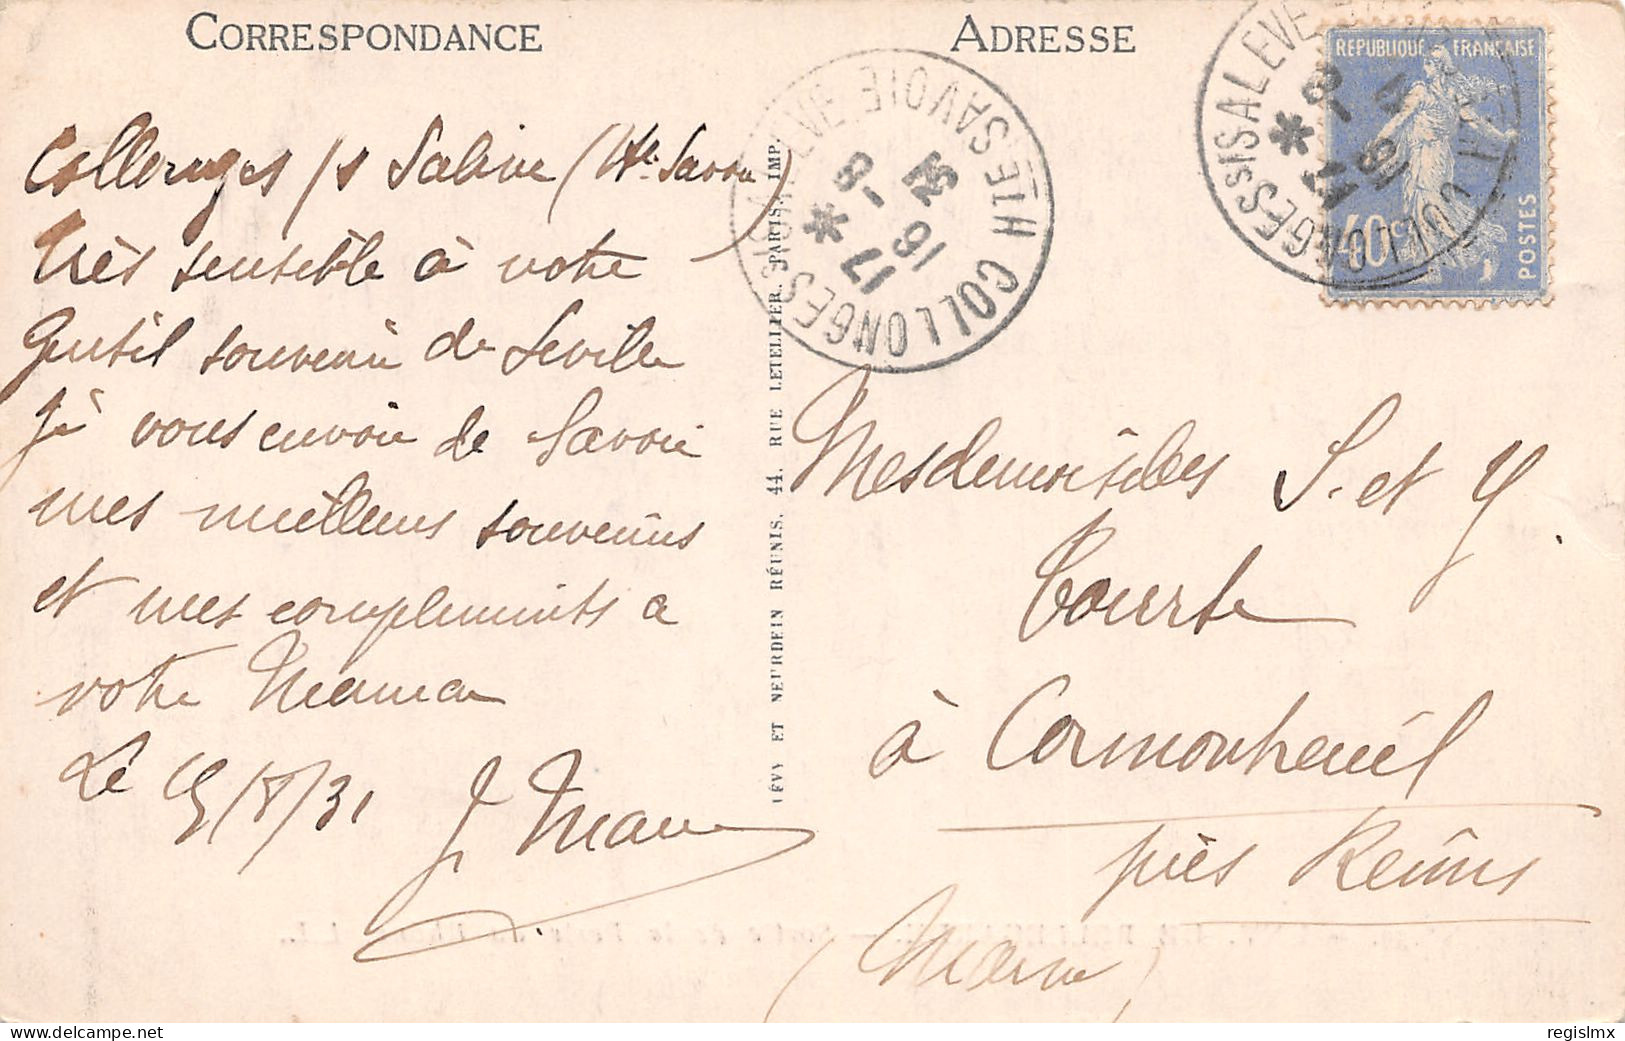 CORRESPONDANCE
Collonges /s Salève (Hte Savoie)
Très sensible à votre
gentil souvenir de Séville
je vous envoie de Savoie
mes meilleurs souvenirs
et mes compliments à
votre Maman
Le 15/8/31
LÉVY ET NEURDEIN RÉUNIS, 44, RUE LETELLIER, PARIS. IMP.
ADRESSE
COLLONGES SS SALEVE HTE SAVOIE
17
16 -8
COLLONGES SS SALEVE
17
16 -8
REPUBLIQUE FRANÇAISE
40c
POSTES
Mesdemoiselles S. et Y.
à Cormontreuil
près Reims
(Marne)
regislmx